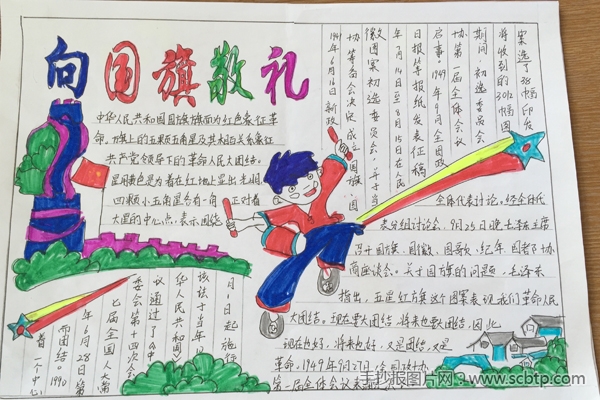 向国旗敬礼
中华人民共和国国旗旗面为红色象征革
命。旗上的五颗五角星及其相互关系象征
共产党领导下的革命人民大团结。
星用黄色是为着在红地上显出光明
四颗小五角星各有一角正对着
大星的中心点,表示围绕
着一个中心
而团结。1990
年6月28日第
七届全国人大第
委会第十四次会
议通过了《中
华人民共和国》
该法于当年
月1日起施行
1949年6月16日新政
协筹备会决定成立国旗、国
徽图案初选委员会。于当
年7月14日至8月15日在人民
日报等报纸发表征稿
启事。1949年9月全国政
协第一届全体会议
期间,初选委员会
将收到的3012幅图
案选了38幅印发
全体代表讨论。经全体代
表分组讨论会,9月25日晚毛主席
召开国旗、国徽、国歌、纪年、国都等协
商座谈会。关于国旗的问题,毛泽东
指出,五星红旗这个图案表现我们革命人民
大团结。现在要大团结,将来也要大团结,因此
现在也好,将来也好,又是团结,又是
革命。1949年9月27日,全国政协
第一届全体会议表
手抄报图片网 www.scbtp.com